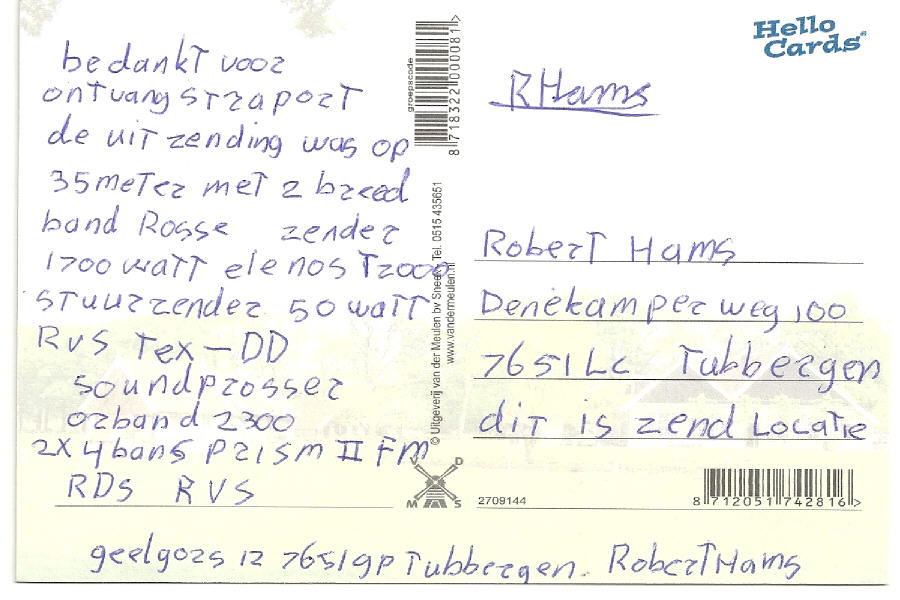 bedankt voor
ontvangstraport
de uitzending was op
35meter met 2 breed
band Rosse zender
1700 watt elenos T2000
stuurzender 50 watt
RVS Tex-DD
soundprosser
orband 2300
2x 4bans Prism II FM
RDS RVS
groepscode
8 718322 000081 >
© Uitgeverij van der Meulen bv Sneek, Tel. 0515 435651
www.vandermeulen.nl
VDMS
Hello
Cards®
RHams
Robert Hams
Denekamperweg 100
7651LC Tubbergen
dit is zend Locatie
2709144
8 712051 742816 >
geelgors 12 7651gp Tubbergen. Robert Hams